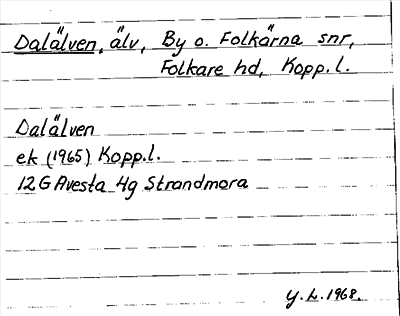 Dalälven, älv, By o. Folkärna snr,
Folkare hd, Kopp.l.
Dalälven
ek (1965) Kopp.l.
12G Avesta 4g Strandmora
Y.L.1968.